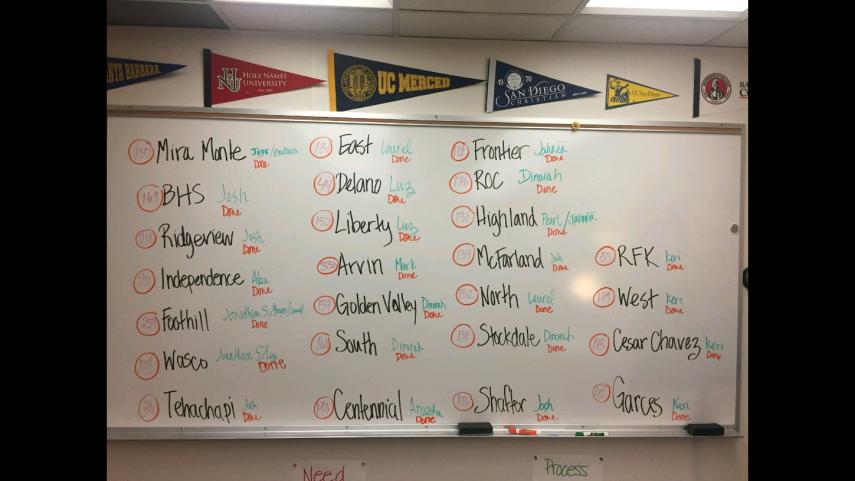 NTA BARBARA
HN
HOLY NAMES
UNIVERSITY
UC MERCED
1970
SAN DIEGO
CHRISTIAN
UC San Diego
TRITONS
BA
CO
Mira Monte JEFF/Barbara
Done
169 BHS Josh
Done
Ridgeview Josh
Done
Independence
Done
Foothill Jonathan S/
Done
Wasco Jonathan S/
Done
Tehachapi Josh
Done
East Laurel
Done
Delano Luz
Done
152 Liberty Luz
Done
Arvin Mark
Done
137 Golden Valley Dinorah
Done
South Dinorah
Done
Centennial
Done
Frontier
Done
176 ROC Dinorah
Done
131 Highland Pearl/
Done
134 McFarland
Done
132 North Laurel
Done
Stockdale Dinorah
Done
Shafter Josh
Done
RFK Keri
Done
West Keri
Done
Cesar Chavez Keri
Done
Garces Keri
Done
Need
Process